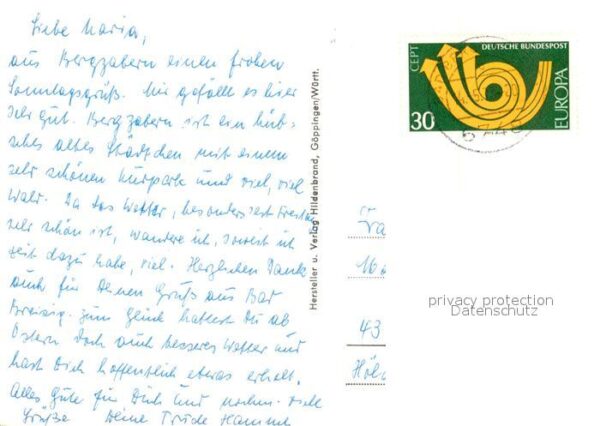 Liebe Maria,
aus Bergzabern einen frohen
Sonntagsgruß. Mir gefällt es hier
sehr gut. Bergzabern ist ein hüb-
sches altes Städtchen mit einem
sehr schönen Kurpark und viel, viel
Wald. Da das Wetter, besonders seit Freitag
sehr schön ist, wandere ich, soweit ich
Zeit dazu habe, viel. Herzlichen Dank
auch für Deinen Gruß aus Bad
Breisig. Zum Glück hattest Du ab
Ostern doch auch besseres Wetter und
hast Dich hoffentlich etwas erholt.
Alles Gute für Dich und viele
Grüße Deine Trude Hamme
Hersteller u. Verlag Hildenbrand, Göppingen/Württ.
CEPT
DEUTSCHE BUNDESPOST
EUROPA
30
43
privacy protection
Datenschutz